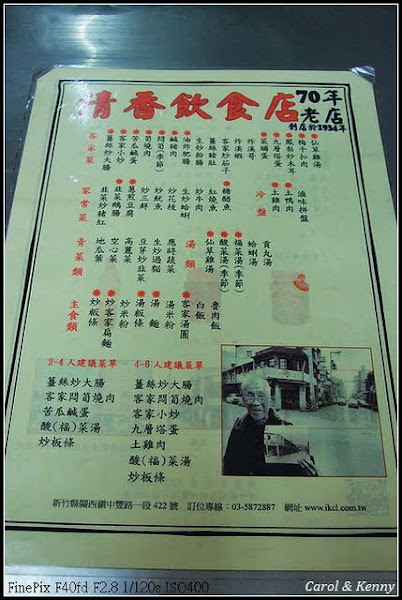 清香飲食店
70年
老店
創店於1934年
客家菜
薑絲炒大腸
客家小炒
苦瓜鹹蛋
筍燒肉
悶筍(季節)
鹹豬肉
油炸肥腸
生炒粉腸
薑絲豬肚
客家炒茄子
炸溪蝦
炸溪哥
菜脯蛋
九層塔蛋
鳳梨炒木耳
梅子扣肉
仙草雞湯
家常菜
韭菜炒豬紅
韭菜鵝腸
蔥煎豆腐
炒三鮮
炒魷魚
炒花枝
生炒蛤蜊
炒牛肉
紅燒魚
糖醋魚
冷盤
土雞肉
土鴨肉
滷味拼盤
青菜類
地瓜葉
空心菜
高麗菜
豆芽炒韭菜
生炒過貓
應時蔬菜
湯類
仙草雞湯
酸菜湯(季節)
福菜湯(季節)
蛤蜊湯
貢丸湯
主食類
炒板條
炒客家扁麵
炒米粉
湯板條
湯麵
湯米粉
客家湯圓
白飯
魯肉飯
2-4 人建議菜單
薑絲炒大腸
客家悶筍燒肉
苦瓜鹹蛋
酸(福)菜湯
炒板條
4-6 人建議菜單
薑絲炒大腸
客家悶筍燒肉
客家小炒
九層塔蛋
土雞肉
酸(福)菜湯
炒板條
新竹縣關西鎮中豐路一段 422 號 訂位專線：03-5872887 網址 www.ikcl.com.tw
FinePix F40fd F2.8 1/120s ISO400
Carol & Kenny